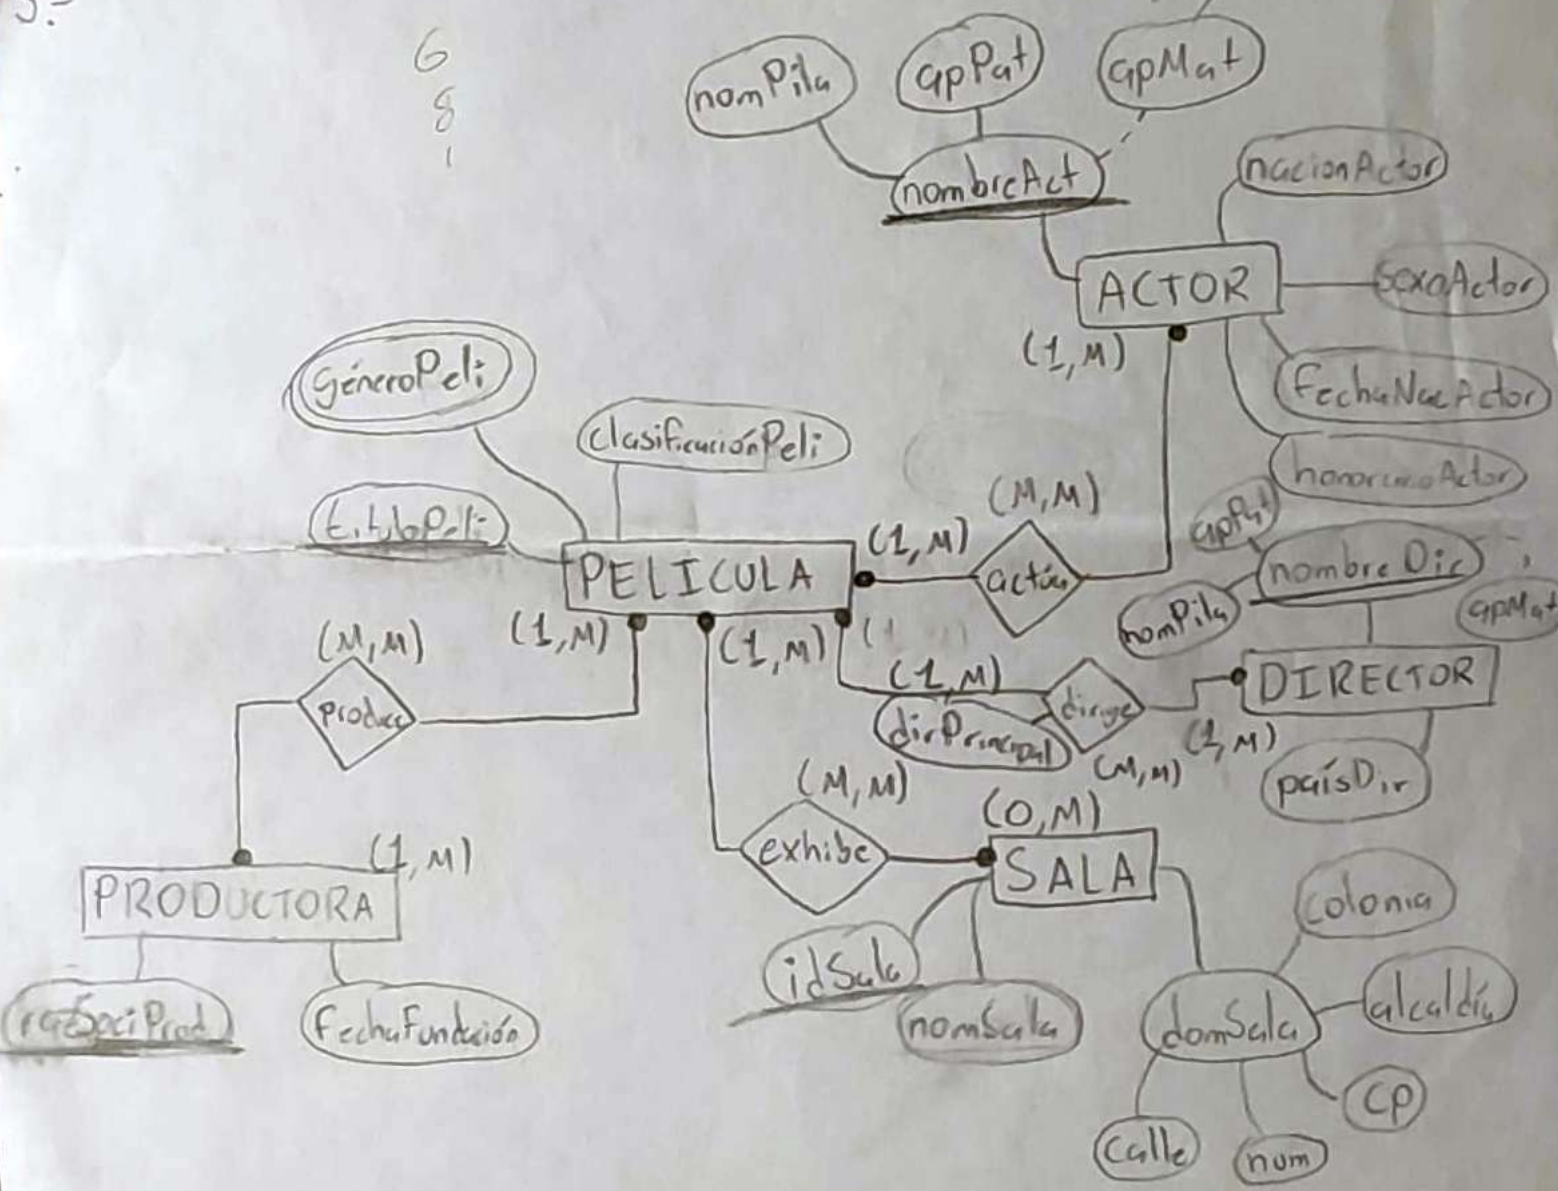 5.-
6
8
1
nomPila
apPat
apMat
nombreAct
nacionActor
ACTOR
sexoActor
(1,M)
fechaNacActor
honorarioActor
géneroPeli
clasificaciónPeli
títuloPeli
(M,M)
(1,M)
PELICULA
actúa
apPat
nombreDir
nomPila
apMat
(1,M)
(1,M)
(M,M)
produce
(1,M)
dirPrincipal
dirige
DIRECTOR
(1,M)
(M,M)
paísDir
(M,M)
exhibe
(0,M)
SALA
(1,M)
PRODUCTORA
razSociProd
fechaFundación
idSala
nomSala
domSala
colonia
alcaldía
CP
calle
num